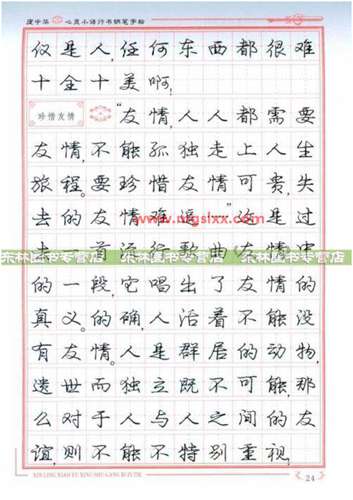 庞中华 心灵小语行书钢笔字帖
仅是人,任何东西都很难
十全十美啊!
珍惜友情 “友情,人人都需要
友情,不能孤独走上人生
旅程。要珍惜友情可贵,失
去的友情难追”这是过
去一首流行歌曲《友情》中
的一段,它唱出了友情的
真义。的确,人活着不能没
有友情。人是群居的动物,
遗世而独立既不可能,那
么对于人与人之间的友
谊,则不能不特别重视,
www.mgslxx.com
东林图书专营店 东林图书专营店 东林图书专营店
24
XINLING XIAO YU XING SHU GANG BI ZI TIE